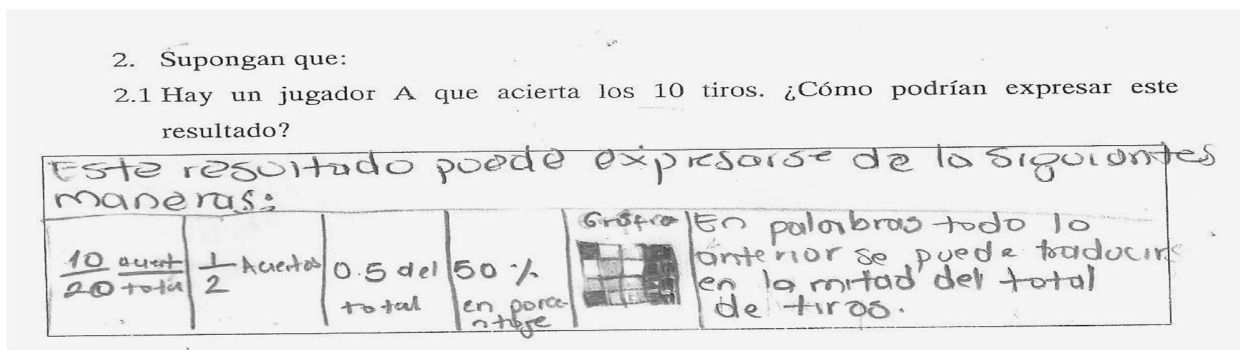 2. Supongan que:
2.1 Hay un jugador A que acierta los 10 tiros. ¿Cómo podrían expresar este
resultado?
Este resultado puede expresarse de la siguientes
maneras:
10/20 aciert/total
1/2 Aciertos
0.5 del
total
50 %
en porce-
ntaje
Gráfico
En palabras todo lo
anterior se puede traducirs
en la mitad del total
de tiros.